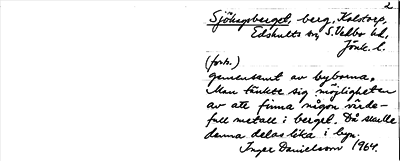 2
Sjöhagsberget, berg, Kolstorp,
Edshults sn, S. Vedbo hd,
Jönk. l.
(forts.)
gemensamt av byborna.
Man tänkte sig möjligheten
av att finna någon värde-
full metall i berget. Då skulle
denna delas lika i byn.
Inger Danielsson 1964.